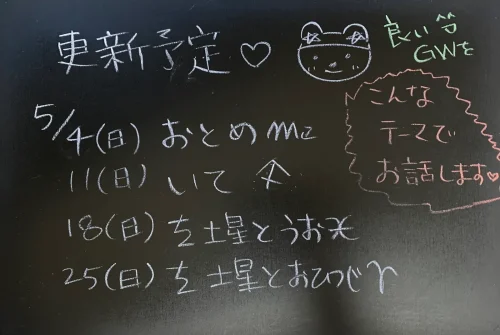 更新予定♡
良い
GWを
5/4(日) おとめ ♍
11(日) いて ♐
18(日) ♄ 土星とうお ♓
25(日) ♄ 土星とおひつじ ♈
こんな
テーマで
お話します♡